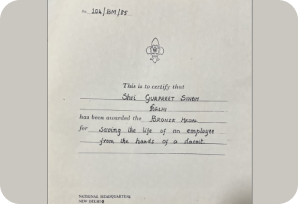 No. 104/BM/85
This is to certify that
Shri GURPREET SINGH
DELHI
has been awarded the BRONZE MEDAL
for saving the life of an employee
from the hands of a dacoit.
NATIONAL HEADQUARTERS
NEW DELHI